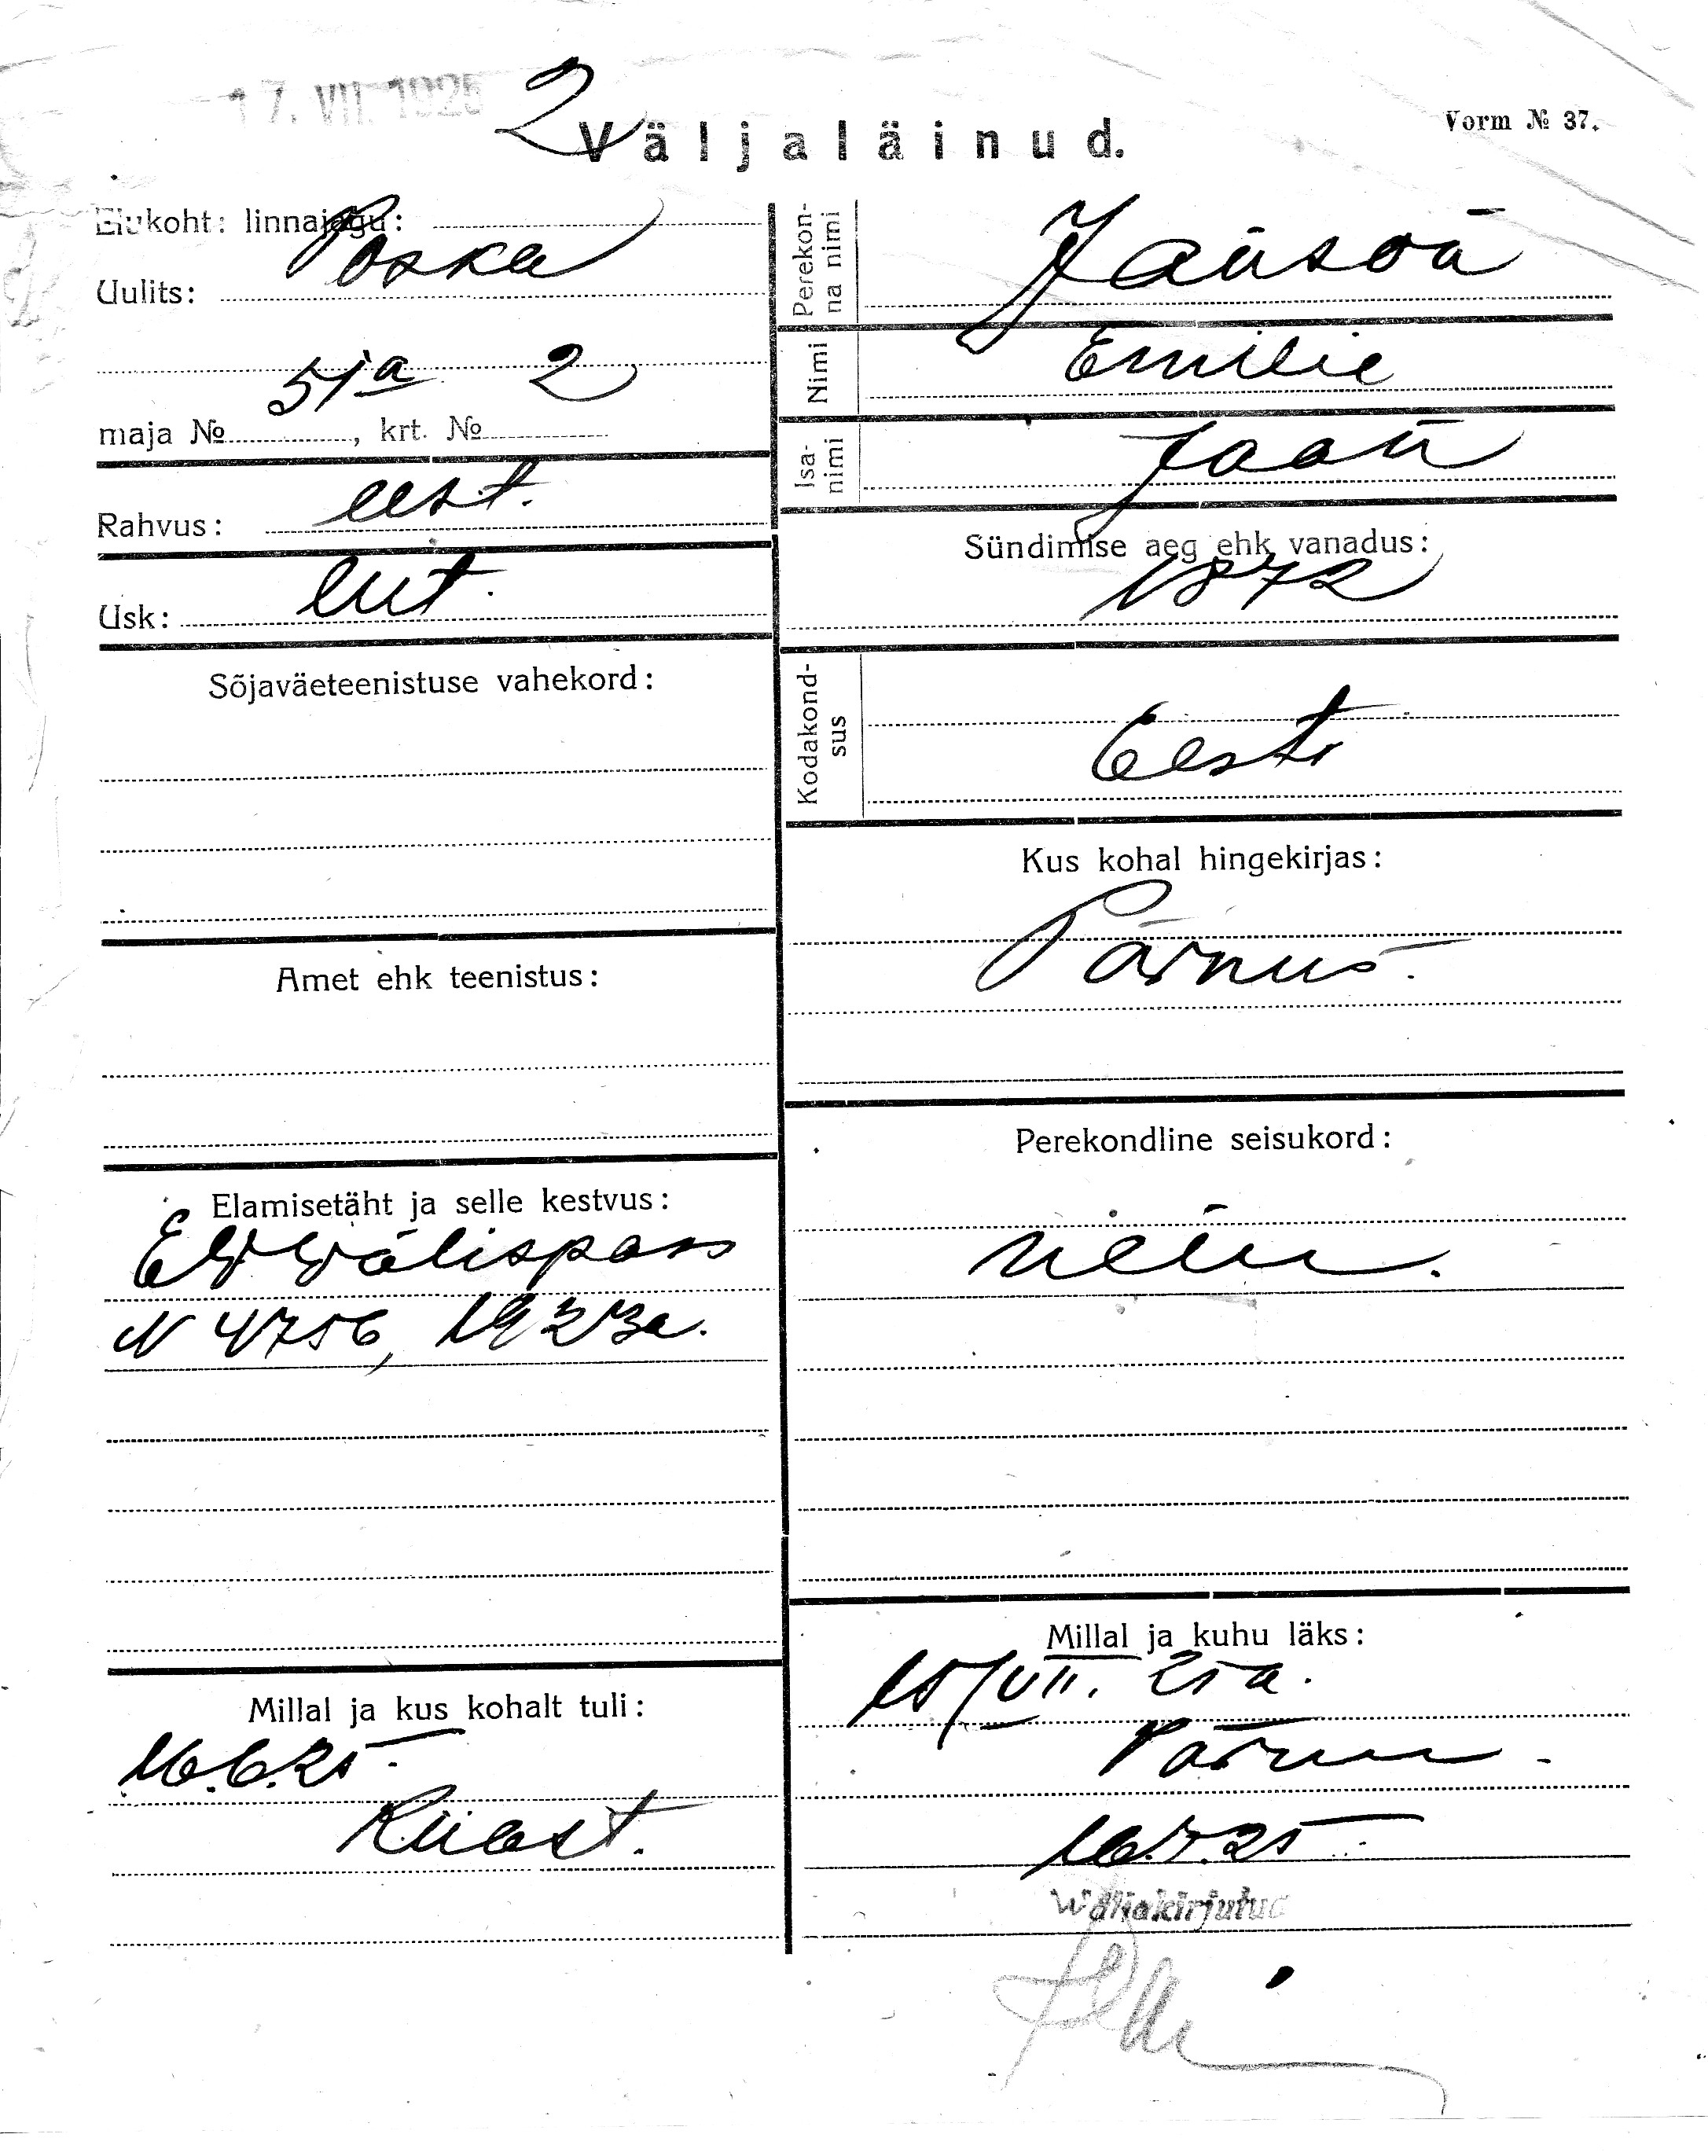 17. VII 1925
2
Väljaläinud.
Vorm № 37.
Elukoht: linnajagu:
Uulits: Poska
maja № 51a, krt. № 2
Rahvus: eest.
Usk: lut.
Sõjaväeteenistuse vahekord:
Amet ehk teenistus:
Elamisetäht ja selle kestvus:
EW Wälispass
N 4756, 1923a.
Millal ja kus kohalt tuli:
16.6.25.
Riiast.
Perekonna nimi
Nimi Emilie
Isanimi Jaan
Sündimise aeg ehk vanadus:
1872
Kodakondsus
Eesti
Kus kohal hingekirjas:
Pärnus.
Perekondline seisukord:
Millal ja kuhu läks:
15/VII. 25 a.
Pärnu
16.7.25
Wäljakirjutud